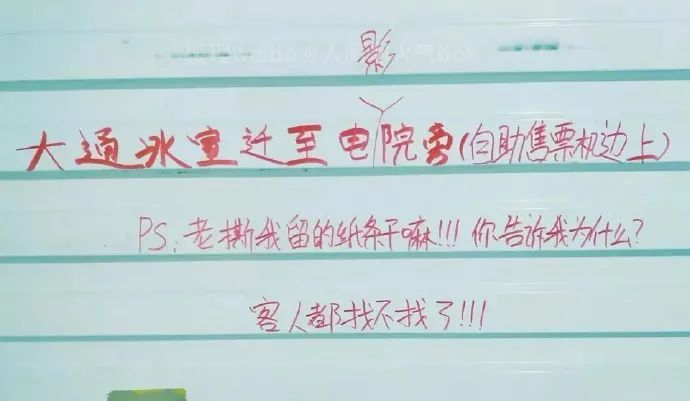 weibo@人 火气bot
大通冰室迁至电影院旁(自助售票机边上)
PS:老撕我留的纸条干嘛!!!你告诉我为什么?
客人都找不找了!!!